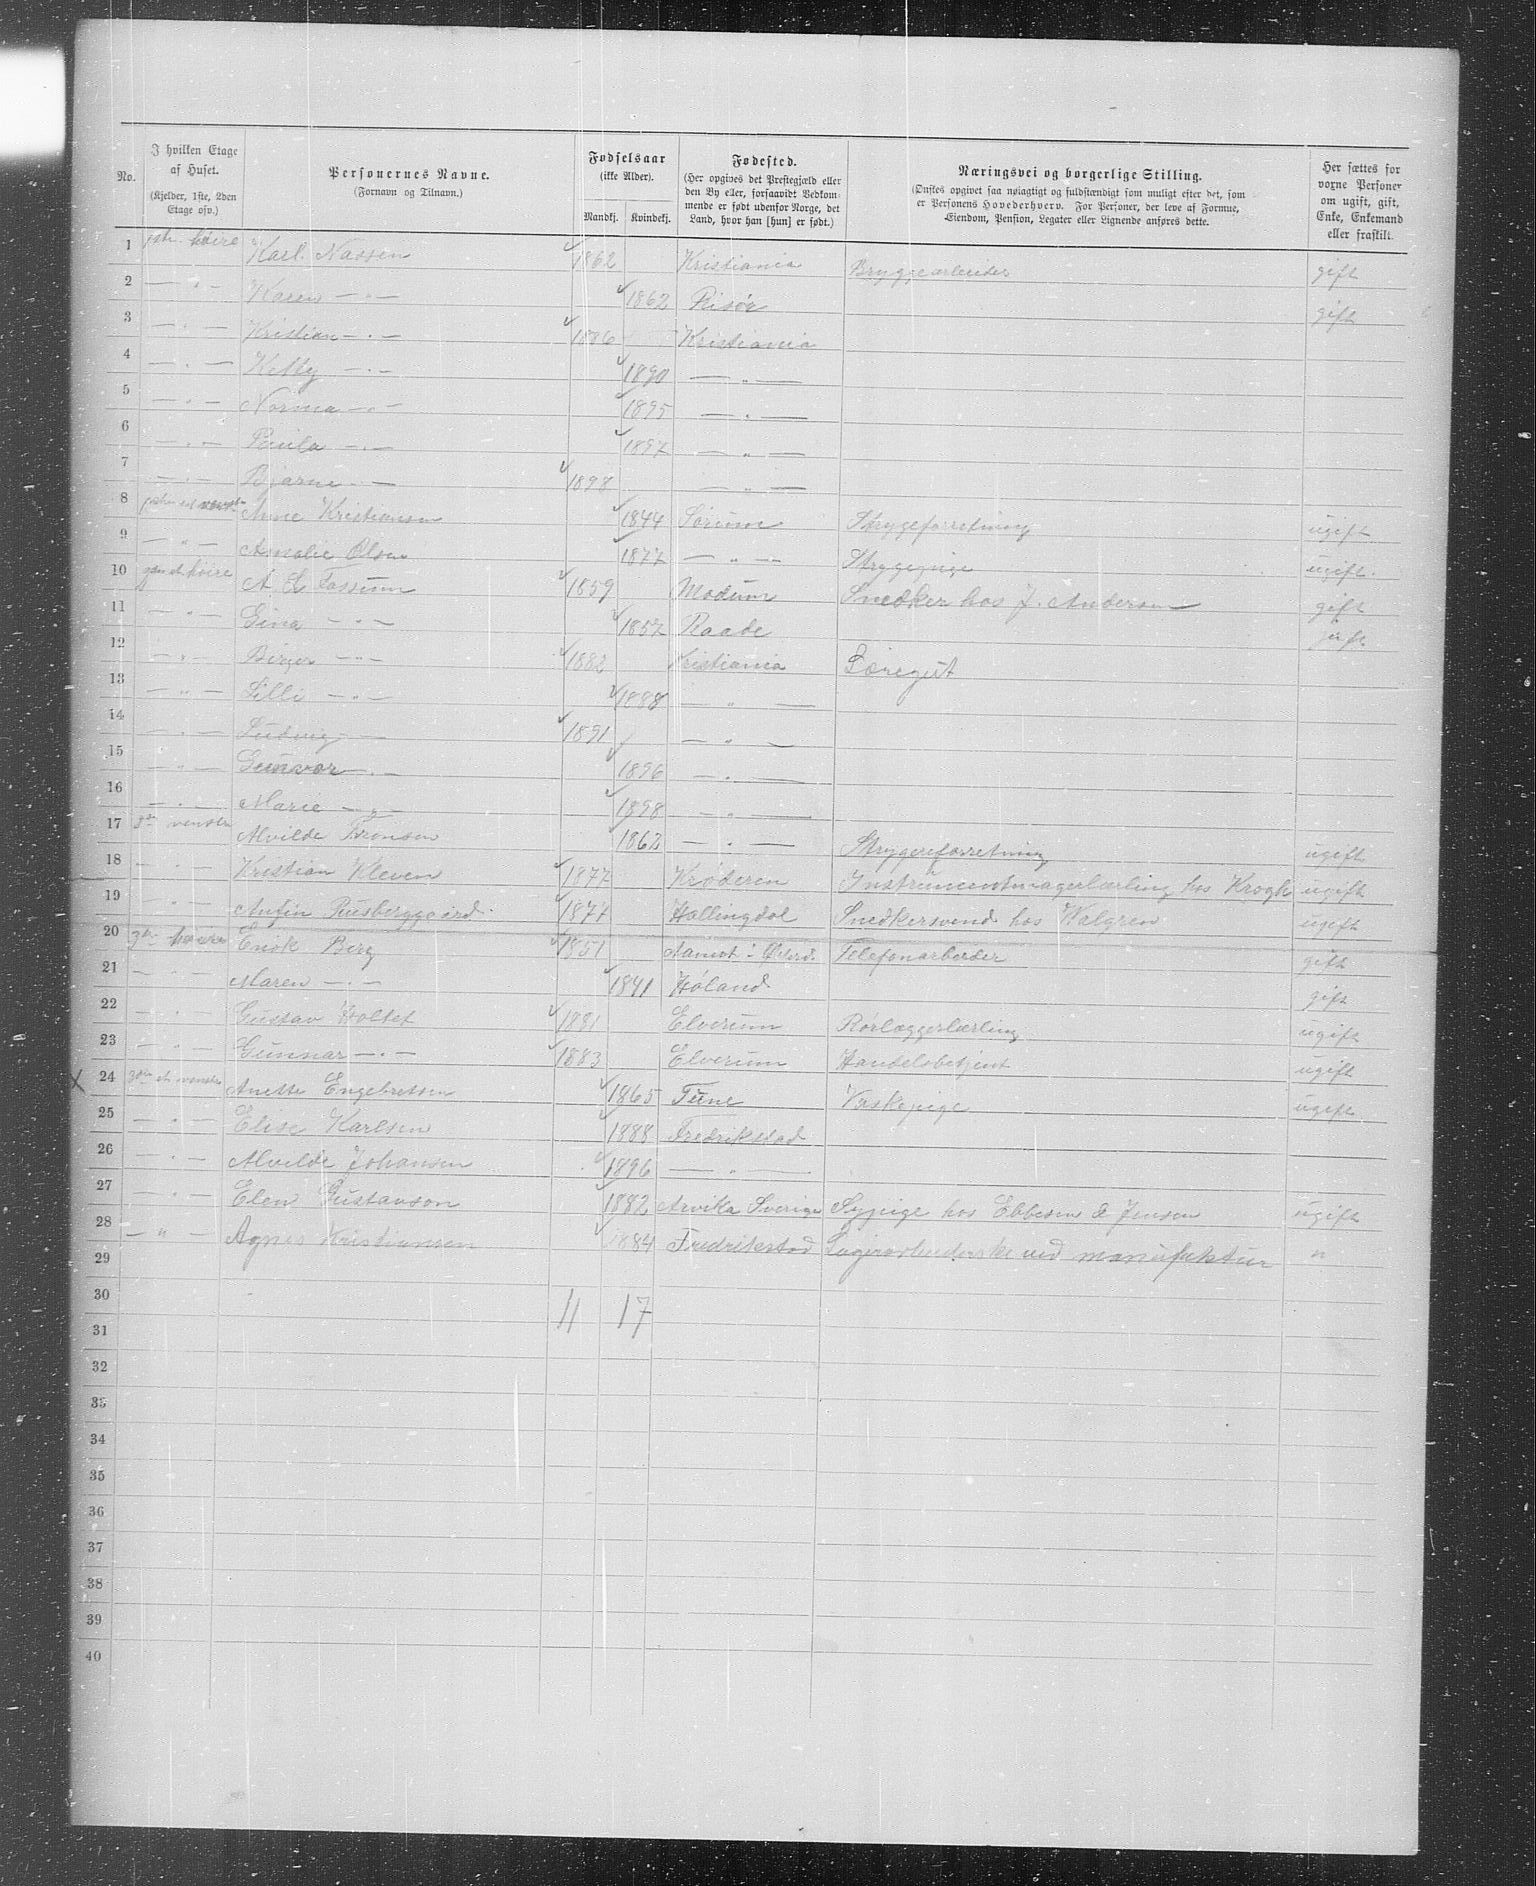 No. I hvilken Etage af Huset. (Kjelder, 1ste, 2den Etage osv.) Personernes Navne. (Fornavn og Tilnavn.) Fødselsaar (ikke Alder). Mandkj. Kvindekj. Fødested. (Her opgives det Prestegjæld eller den By eller, forsaavidt Vedkommende er født udenfor Norge, det Land, hvor han [hun] er født.) Næringsvei og borgerlige Stilling. (Ønskes opgivet saa nøiagtigt og fuldstændigt som muligt efter det, som er Personens Hovederhverv. For Personer, der leve af Formue, Eiendom, Pension, Legater eller Lignende anføres dette. Her sættes for vorne Personer om ugift, gift, Enke, Enkemand eller fraskilt.
1 høire Karl Nassen 1862 Kristiania Bryggearbeider gift
2 — " — Karen — " — 1862 Risør gift
3 — " — Kristian — " — 1886 Kristiania
4 — " — Ketty — " — 1890 — " —
5 — " — Norma — " — 1895 — " —
6 — " — Paula — " — 1897 — " —
7 — " — Bjarne — " — 1898 — " —
8 Anne Kristiansen 1844 Sørum Strygeforretning ugift
9 — " — Amalie Olsen 1877 — " — Strygepige ugift.
10 høire A. Fossum 1859 Modum Snedker hos J. Andersen gift
11 — " — Gina — " — 1857 Raade gift
12 — " — Birger — " — 1882 Kristiania Læregut
13 — " — Lilli — " — 1888 — " —
14 — " — Ludvig — 1891 — " —
15 — " — Gunvor — " — 1896 — " —
16 — " — Marie — " — 1898 — " —
17 venstre Alvilde Tronsen 1862 — " — Strygereforretning ugift
18 — " — Kristian Kleven 1877 Krøderen Instrumentmagerlærling hos Krogh ugift
19 — " — Anfin Rusberggaard 1877 Hallingdal Snedkersvend hos Walgren ugift
20 Enok Berg 1851 Aamot i Østerd. Telefonarbeider gift
21 Maren — " — 1841 Høland gift
22 — " — Gustav Holtet 1881 Elverum Rørlæggerlærling ugift
23 — " — Gunnar — " — 1883 Elverum Handelsbetjent ugift
X 24 3die et venstre Anette Engebretsen 1865 Tune Vaskepige ugift
25 — " — Elise Karlsen 1888 Fredrikstad
26 — " — Alvilde Johansen 1896 — " —
27 — " — Elen Gustavson 1882 Arvika Sverige Sypige hos Ebbesen & Jensen ugift
28 — " — Agnes Kristiansen 1884 Fredrikstad Lagerarbeiderske ved manufaktur "
29
30 11 17
31
32
33
34
35
36
37
38
39
40